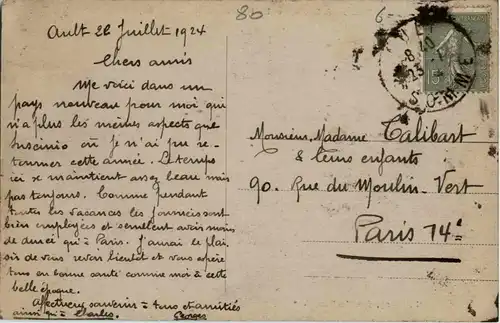 8b
6-
Ault 22 Juillet 1924
Chers amis
Me voici dans un
pays nouveau pour moi qui
n'a plus les mêmes aspects que
Suscinio où je n'ai pu re-
tourner cette année. Le temps
ici se maintient assez beau mais
pas toujours. Comme pendant
toutes les vacances les journées sont
bien employées et semblent avoir moins
de durée qu'à Paris. J'aurai le plai
sir de vous revoir bientôt et vous espère
tous en bonne santé comme moi à cette
belle époque.
Affectueux souvenir à tous et amitiés
ainsi qu'à Charles. Georges
T
AULT
8 40
23
SOMME
15
Monsieur, Madame Talibart
& leurs enfants
90. Rue du Moulin-Vert
Paris 14e